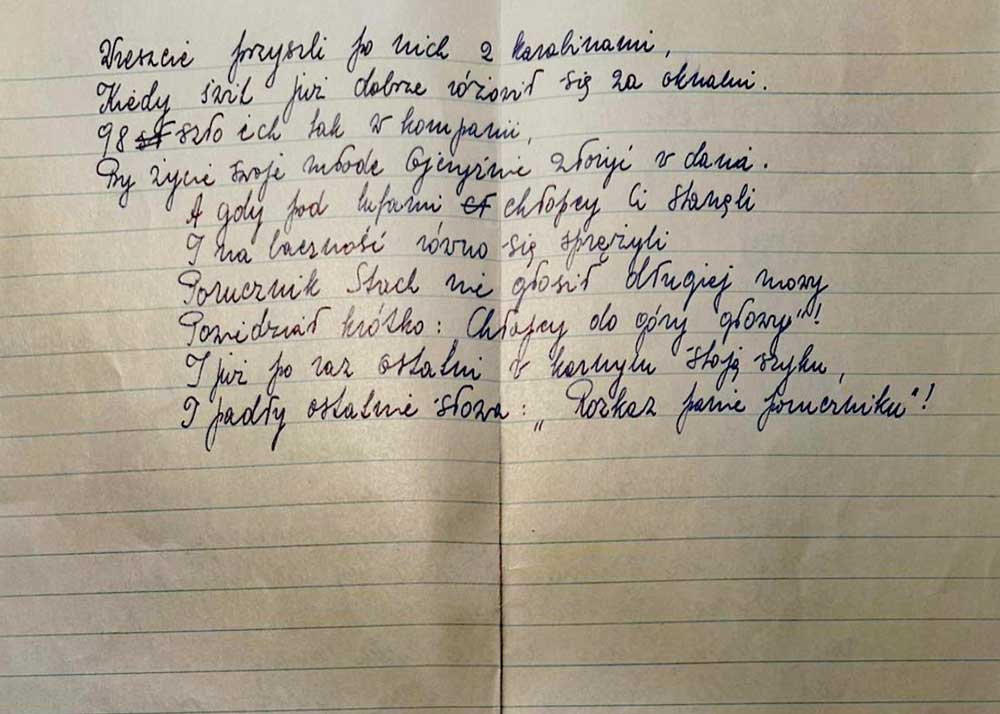 Wreszcie przyszli po nich z karabinami,
Kiedy świt już dobrze różowił się za oknami.
98 szło ich tak w kompanii,
By życie swoje młode Ojczyźnie złożyć w dani.
A gdy pod lufami chłopcy Ci stanęli
I na baczność równo się sprężyli
Porucznik Stach nie głosił długiej mowy
Powiedział krótko: Chłopcy do góry głowy"!
I już po raz ostatni w karnym stoją szyku,
I padły ostatnie słowa: „Rozkaz panie poruczniku"!